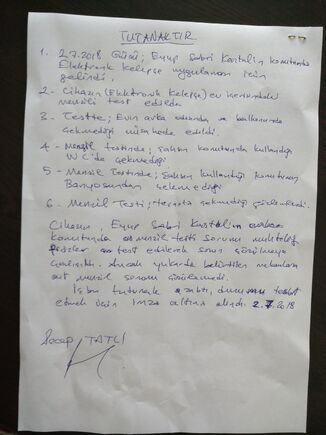 TUTANAKTIR
1. 2.7.2018 Günü; Eyup Sabri Kartalin konutunda
Elektronik Kelepçe uygulaması için
gelindi.
2- Cihazın (Elektronik Kelepçe) ev içerisindeki
mensili test edildi
3- Testte; Evin arka odasında ve balkonunda
çekmediği müşahede edildi.
4- Mensil testinde; şahsın konutunda kullandığı
WC'de çekmediği
5- Mensil Testinde; şahsın kullandığı konutunun
Banyosundan çekmediği
6- Mensil Testi; terasta çekmediği
Cihazın, Eyup Sabri Kartalın
konutunda mensil testi sorunu muhtelif
test edilerek sorun
Ancak yukarda belirtilen mekanların
mensil sorunu
İşbu tutanak tesbit
etmek için imza altına alındı. 2.7.2018
Recep TATLI